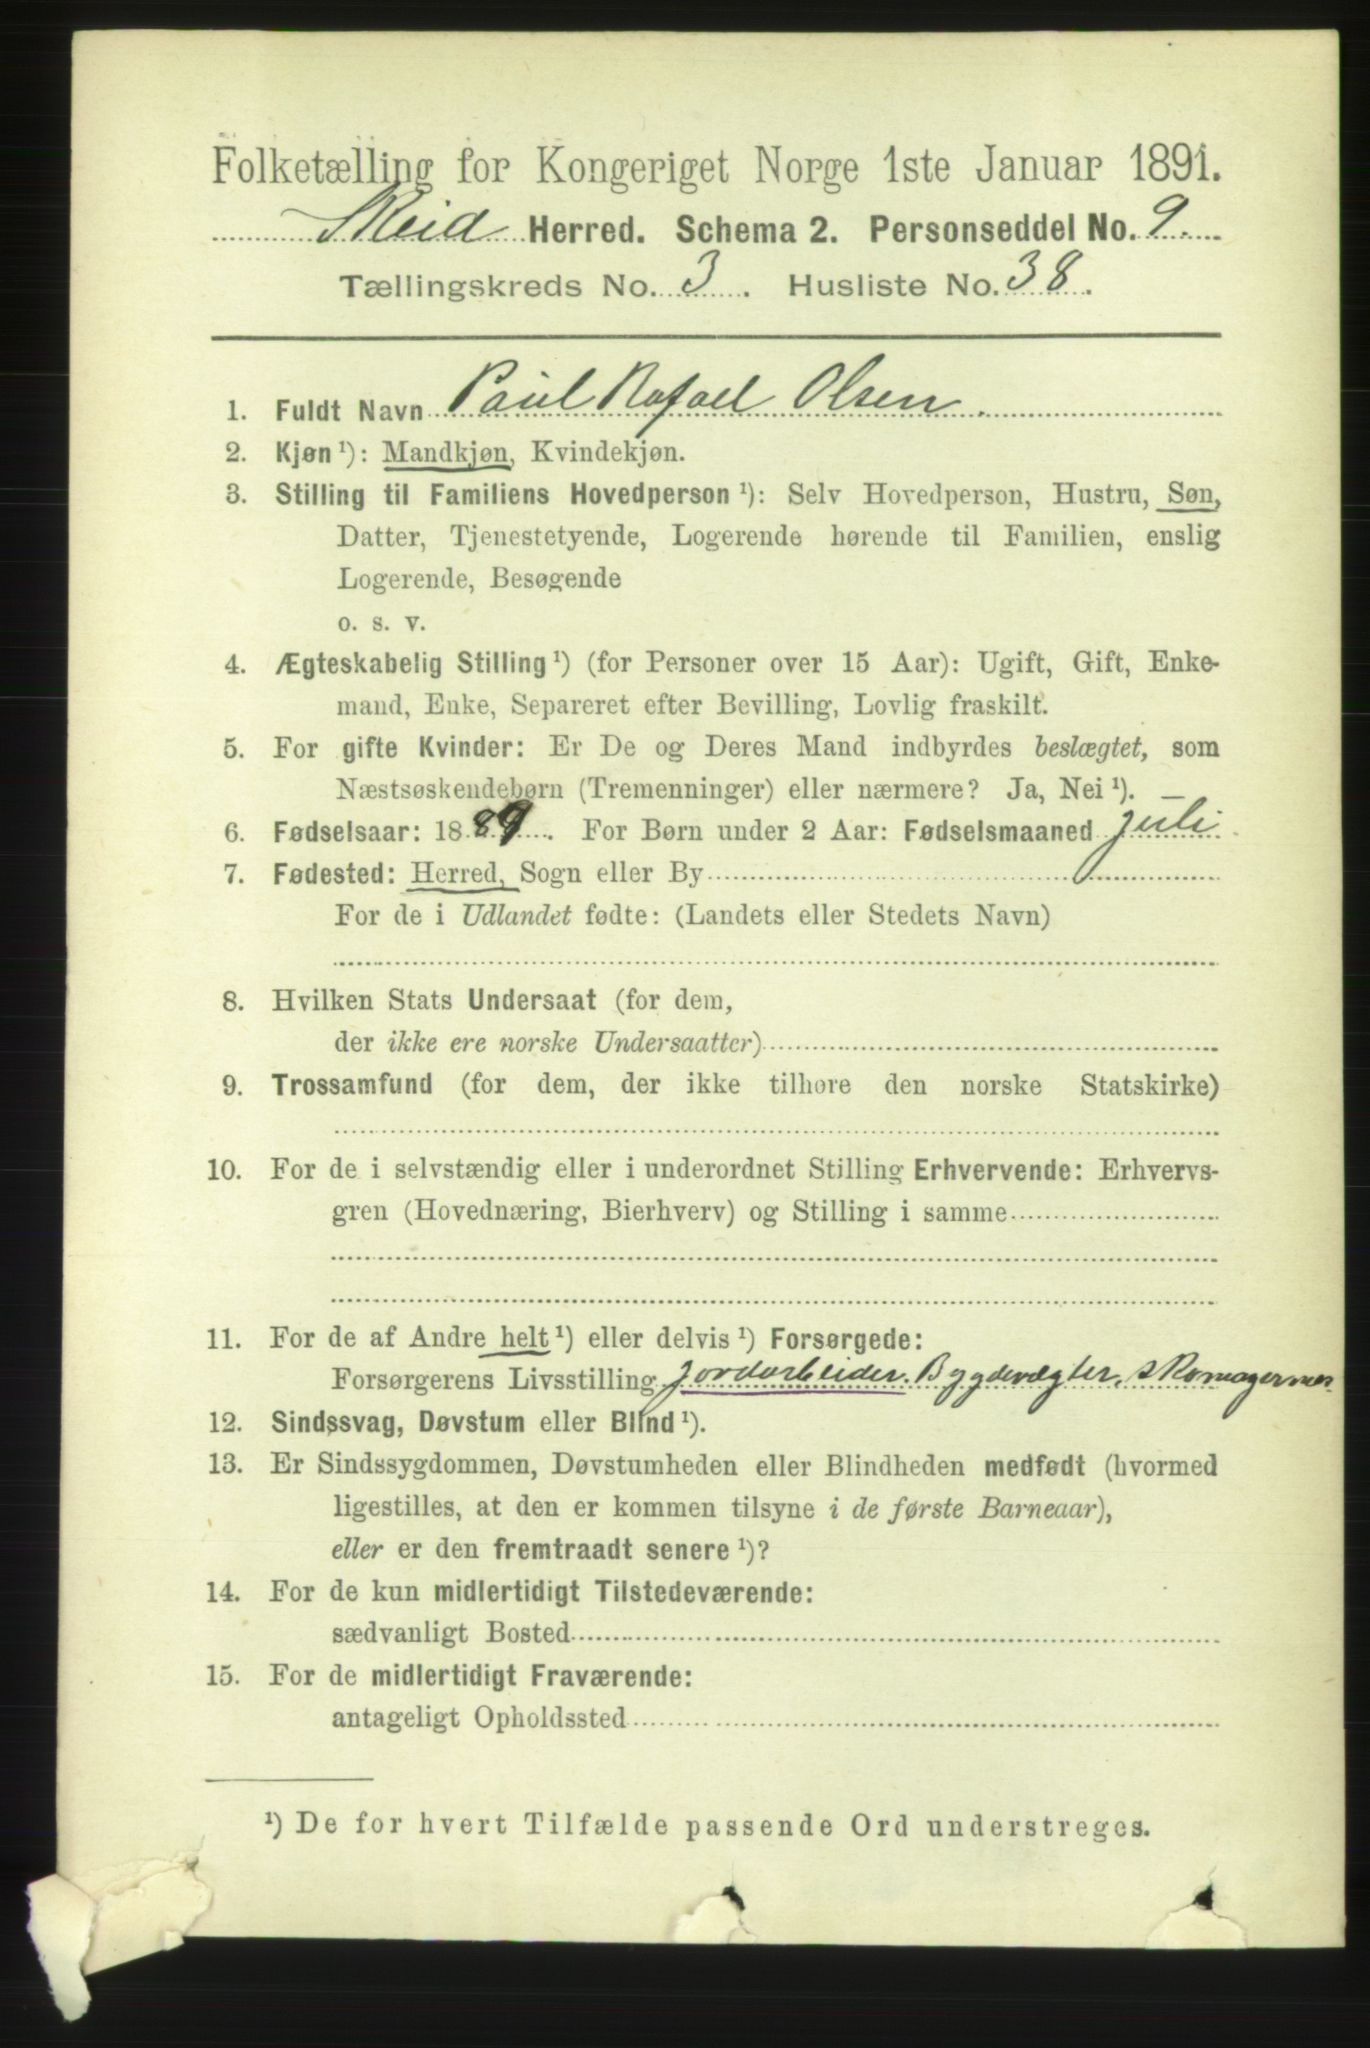 Folketælling for Kongeriget Norge 1ste Januar 1891.
Skeid Herred. Schema 2. Personseddel No. 9.
Tællingskreds No. 3. Husliste No. 38.
1. Fuldt Navn Paul Rafael Olsen.
2. Kjøn ¹): Mandkjøn, Kvindekjøn.
3. Stilling til Familiens Hovedperson ¹): Selv Hovedperson, Hustru, Søn,
Datter, Tjenestetyende, Logerende hørende til Familien, enslig
Logerende, Besøgende
o. s. v.
4. Ægteskabelig Stilling ¹) (for Personer over 15 Aar): Ugift, Gift, Enke-
mand, Enke, Separeret efter Bevilling, Lovlig fraskilt.
5. For gifte Kvinder: Er De og Deres Mand indbyrdes beslægtet, som
Næstsøskendebørn (Tremenninger) eller nærmere? Ja, Nei ¹).
6. Fødselsaar: 1889. For Børn under 2 Aar: Fødselsmaaned juli
7. Fødested: Herred, Sogn eller By
For de i Udlandet fødte: (Landets eller Stedets Navn)
8. Hvilken Stats Undersaat (for dem,
der ikke ere norske Undersaatter)
9. Trossamfund (for dem, der ikke tilhøre den norske Statskirke)
10. For de i selvstændig eller i underordnet Stilling Erhvervende: Erhvervs-
gren (Hovednæring, Bierhverv) og Stilling i samme
11. For de af Andre helt ¹) eller delvis ¹) Forsørgede:
Forsørgerens Livsstilling Jordarbeider. Bygdevægter,
12. Sindssvag, Døvstum eller Blind ¹).
13. Er Sindssygdommen, Døvstumheden eller Blindheden medfødt (hvormed
ligestilles, at den er kommen tilsyne i de første Barneaar),
eller er den fremtraadt senere ¹)?
14. For de kun midlertidigt Tilstedeværende:
sædvanligt Bosted
15. For de midlertidigt Fraværende:
antageligt Opholdssted
¹) De for hvert Tilfælde passende Ord understreges.